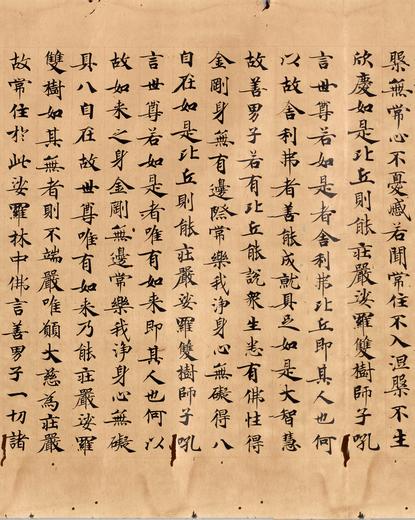 槃無常心不憂慼若聞常住不入涅槃不生
欣慶如是比丘則能莊嚴娑羅雙樹師子吼
言世尊若如是者舍利弗比丘即其人也何
以故舍利弗者善能成就具足如是大智慧
故善男子若有比丘能說衆生悉有佛性得
金剛身無有邊際常樂我淨身心無礙得八
自在如是比丘則能莊嚴娑羅雙樹師子吼
言世尊若如是者唯有如來即其人也何以
故如來之身金剛無邊常樂我淨身心無礙
具八自在故世尊唯有如來乃能莊嚴娑羅
雙樹如其無者則不端嚴唯願大慈為莊嚴
故常住於此娑羅林中佛言善男子一切諸